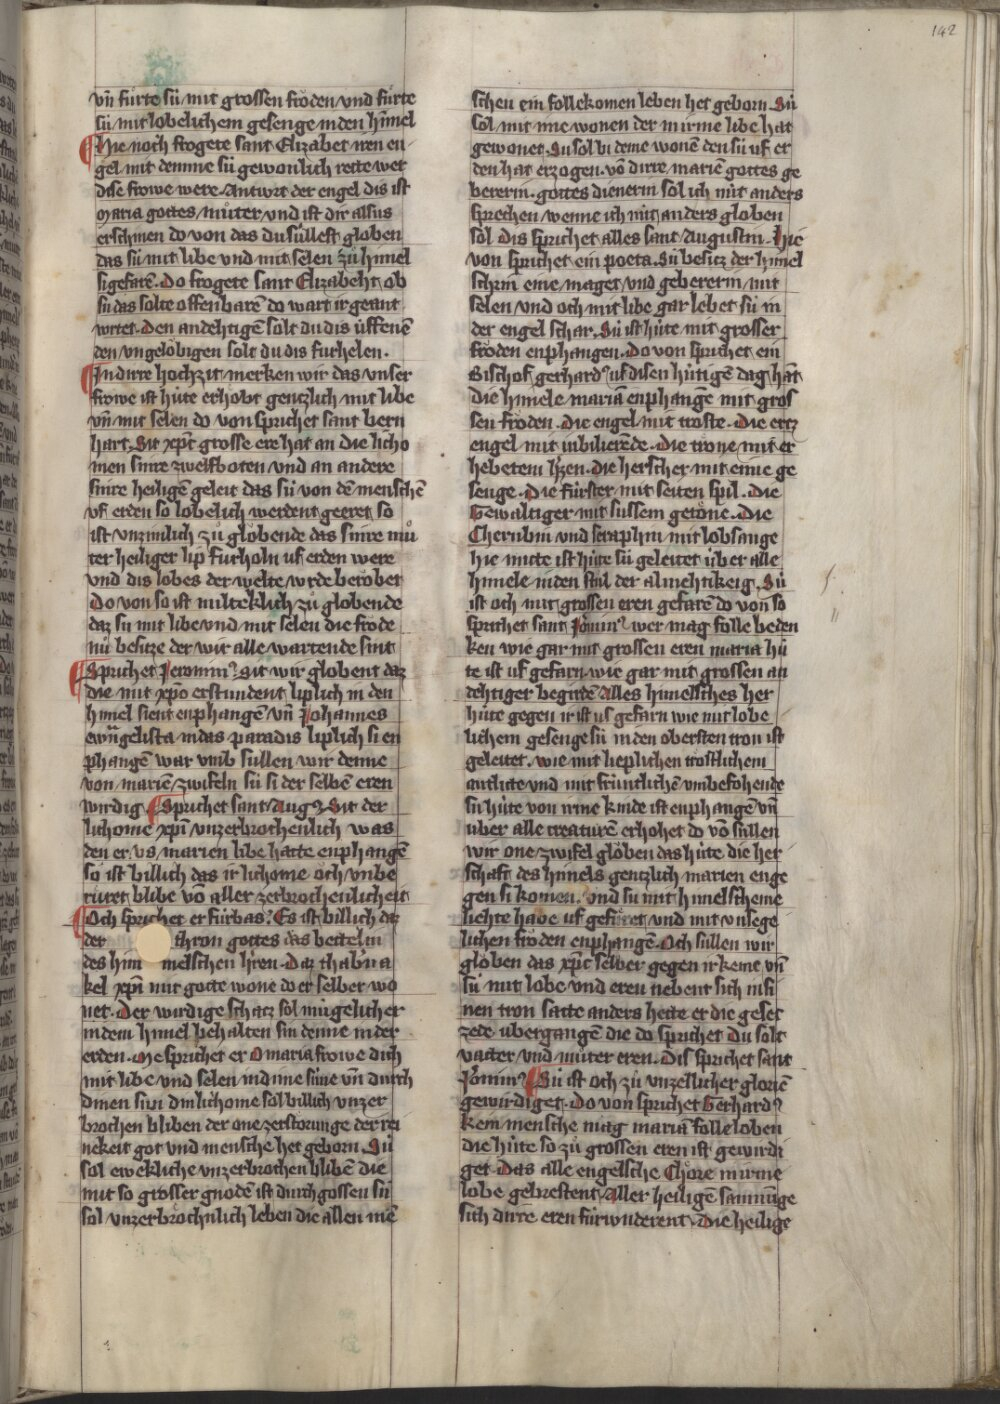 142
vn̄ fůrte sú mit grossen froͤden vnd fůrte
sú mit lobelichem gesenge in den himel
Hie noch frogete sant Elizabet nen en-
gel mit demme sú gewonlich rette wer
dise frowe were. Antwrt der engel dis ist
Maria gottes můter vnd ist dir alsus
erschinen do von das du súllest gloͮben
das sú mit libe vnd mit selen zů himel
si gefarē. Do frogete sant Elizabeht ob
sú das solte offenbarē do wart ir geant
wrtet. Den andehtigē solt du dis úffenē
den vngeloͤbigen solt du dis furhelen.
In dirre hochzit merken wir das vnser
frowe ist húte erhoͤht gentzlich mit libe
vn̄ mit selen do von sprichet sant bern
hart. Sit xp̄c grosse ere hat an die licho
men sinre zwelfboten vnd an andere
sinre heiligē geleit das sú von dē menschē
vf erden so lobelich werdent geeret so
ist vnzimlich zů gloͮbende das sinre mů
ter heiliger lip furholn uf erden were
vnd dis lobes der welte wrde beroͮbet
Do von so ist milteklich zů gloͮbende
daz sú mit libe vnd mit selen die froͤde
nů besitze der wir alle wartende sint
Sprichet Jeronim⁹. sit wir gloͮbent daz
die mit xp̄o erstundent liplich in den
himel sient enphangē vn̄ Johannes
ewāgelista in das paradis liplich si en
phangē war vmb súllen wir denne
von mariē zwifeln sú si der selbē eren
wirdig. Sprichet sant Aug⁹. Sit der
lichome xp̄i vnzerbrochenlich was
den er vs marien libe hatte enphangē
so ist billich das ir lichome oͮch vnbe
růret blibe vō aller zerbrochenlicheit
Och sprichet er fúrbas. Es ist billich daz
der thron gottes das bettelin
des him melschen h̄ren. Daz thab̄na
kel xp̄i mit gotte wone do er selber wo
net. Der wirdige schatz sol múgelicher
in dem himel behalten sin denne in der
erden. Me sprichet er O maria frowe dich
mit libe vnd selen in dime súne vn̄ durch
dinen sun din lichome sol billich vnzer
brochen bliben der one zerstorunge der rei
nekeit got vnd mensche het geborn. Sú
sol eweklliche vnzerbrochen blibē die
mit so grosser gnodē ist durchgossen sú
sol vnzerbrochnlich leben die allen mē
schen ein follekomen leben het geborn Sú
sol mit mir wonen der in irme libe hat
gewonet. Su sol bi deme wonē den sú uf er
den hat erzogen. vō dirre mariē gottes ge
bererin. gottes dienerin sol ich nút anders
sprechen wenne ich nút anders gloͮben
sol. Dis sprichet alles sant Augustin. Hie
von sprichet ein poeta. Sú besitz der himel
schrin eine maget vnd gebererin mit
selen vnd och mit libe gar lebet sú in
der engel schar. Sú ist húte mit grosser
froͤden enphangen. Do von sprichet ein
Bischof gerhard⁹ uf disen hútigē dag hāt
die himele mariā enphangē mit gros
sen froͤden. die engel mit troste. die ertz
engel mit iubilierēde. die trone mit er
hebetem h̄zen. die herscher mit eime ge
senge. Die fúrster mit seiten spil. die
Gewaltiger mit sússem getoͤne. Die
Cherubin vnd seraphin mit lobsange
hie mitte ist húte sú geleitet über alle
himele in den stůl der almehtikeig. Sú
ist och mit grossen eren gefarē do von so
sprichet sant J̄onim⁹. wer mag folle beden
ken wie gar mit grossen eren maria hú
te ist uf gefarn wie gar mit grossen an
dehtiger begirdē Alles himelsches her
húte gegen ir ist us gefarn wie mit lobe
lichem gesenge sú in den obersten tron ist
geleitet. wie mit lieplichen trostlichem
antlute vnd mit frúntlichē vmbefohende
sú húte von irme kinde ist enphangē vn̄
uber alle creaturē erhohet do vō súllen
wir one zwifel gloͮben das húte die her
schaft des himels gentzlich marien enge
gen si komen. vnd sú mit himelscheme
liehte habe uf gefúret vnd mit vnsege
lichen froͤden enphangē. Och súllen wir
gloͮben das xp̄c selber gegen ir keme vn̄
sú mit lobe vnd eren nebent sich in si
nen tron satte anders hette er die gesetz
zede übergangē die do sprichet du solt
vatter vnd můter eren. Dis sprichet sant
J̄onim⁹. Sú ist och zů vnzellicher gloriē
gewirdiget. do von sprichet Gerhard⁹
kein mensche mag mariā folle loben
die húte so zů grossen eren ist gewirdi
get. Das alle engelsche Choͤre in irme
lobe gebrestent. Aller heiligē samnūge
sich dirre eren fúrwnderent. Die heilige